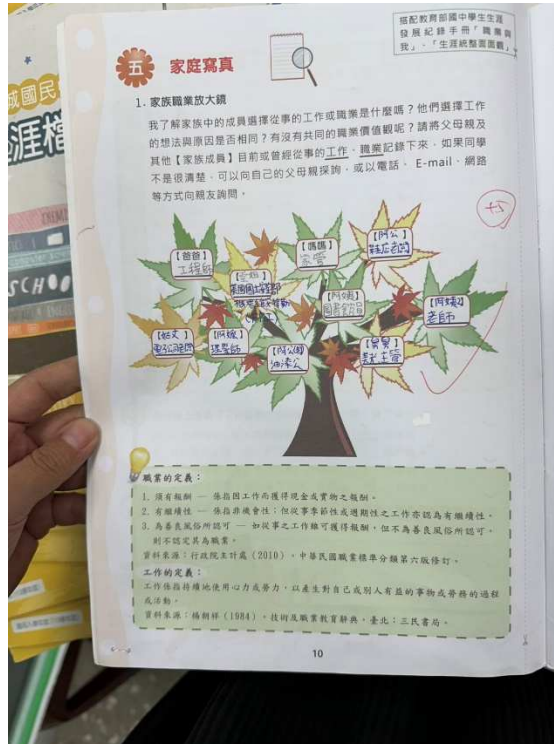 搭配教育部國中學生生涯
發展紀錄手冊「職業與
我」、「生涯統整面面觀」
五 家庭寫真
1. 家族職業放大鏡
我了解家族中的成員選擇從事的工作或職業是什麼嗎？他們選擇工作
的想法與原因是否相同？有沒有共同的職業價值觀呢？請將父母親及
其他【家族成員】目前或曾經從事的工作、職業記錄下來，如果同學
不是很清楚，可以向自己的父母親探詢，或以電話、E-mail、網路
等方式向親友詢問。
+5
【爸爸】
工程師
【媽媽】
家管
【阿公】
鞋店老闆
【阿姨】
圖書館員
【阿姨2】
老師
【姑丈】
【阿嬤】
理髮師
【阿公】
油漆公
【舅舅】
主管
職業的定義：
1. 須有報酬 — 係指因工作而獲得現金或實物之報酬。
2. 有繼續性 — 係指非機會性；但從事季節性或週期性之工作亦認為有繼續性。
3. 為善良風俗所認可 — 如從事之工作雖可獲得報酬，但不為善良風俗所認可，
則不認定其為職業。
資料來源：行政院主計處（2010），中華民國職業標準分類第六版修訂。
工作的定義：
工作係指持續地使用心力或勞力，以產生對自己或別人有益的事物或勞務的過程
或活動。
資料來源：楊朝祥（1984），技術及職業教育辭典，臺北：三民書局。
10
國民
涯檔